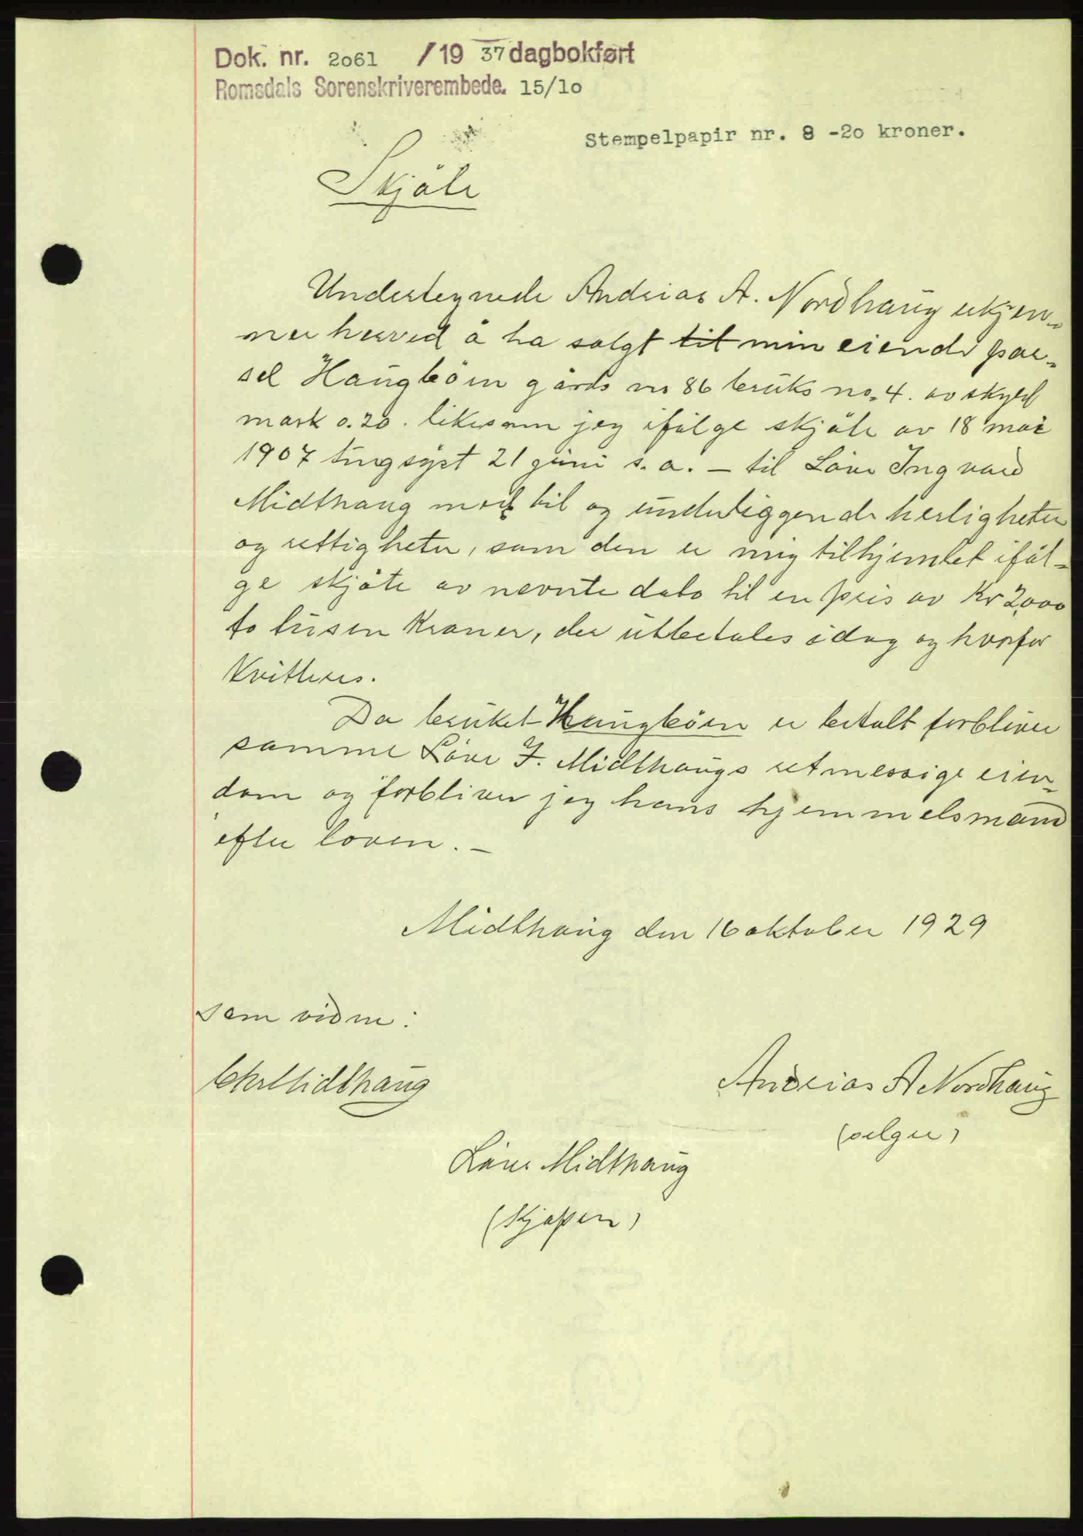 Dok. nr. 2061 /19 37 dagbokført
Romsdals Sorenskriverembede. 15/10
Stempelpapir nr. 8 -20 kroner.
Skjöte
Undertegnede Andreas A. Nordhaug erkjen-
ner herved å ha solgt til min eiende par-
sel Haugböen gårds no 86 bruks no. 4. av skyld
mark 0.20. likesom jeg ifölge skjöte av 18 mai
1907 tinglyst 21 juni s.a. - til Löve Ingvard
Midthaug med til og underliggende herligheter
og rettigheter, som den er mig tilhjemlet iföl-
ge skjöte av nevnte dato til en pris av Kr 2000
to tusen Kroner, der utbetales idag og hvorfor
Kvitteres.
Da bruket Haugböen er betalt forbliver
samme Löve I. Midthaugs retmessige eien-
dom og forbliver jeg hans hjemmelsmand
efter loven. -
Midthaug den 16 oktober 1929
som vidne:
Chr Midthaug
Andreas A Nordhaug
(selger)
Löve Midthaug
(Kjöper)